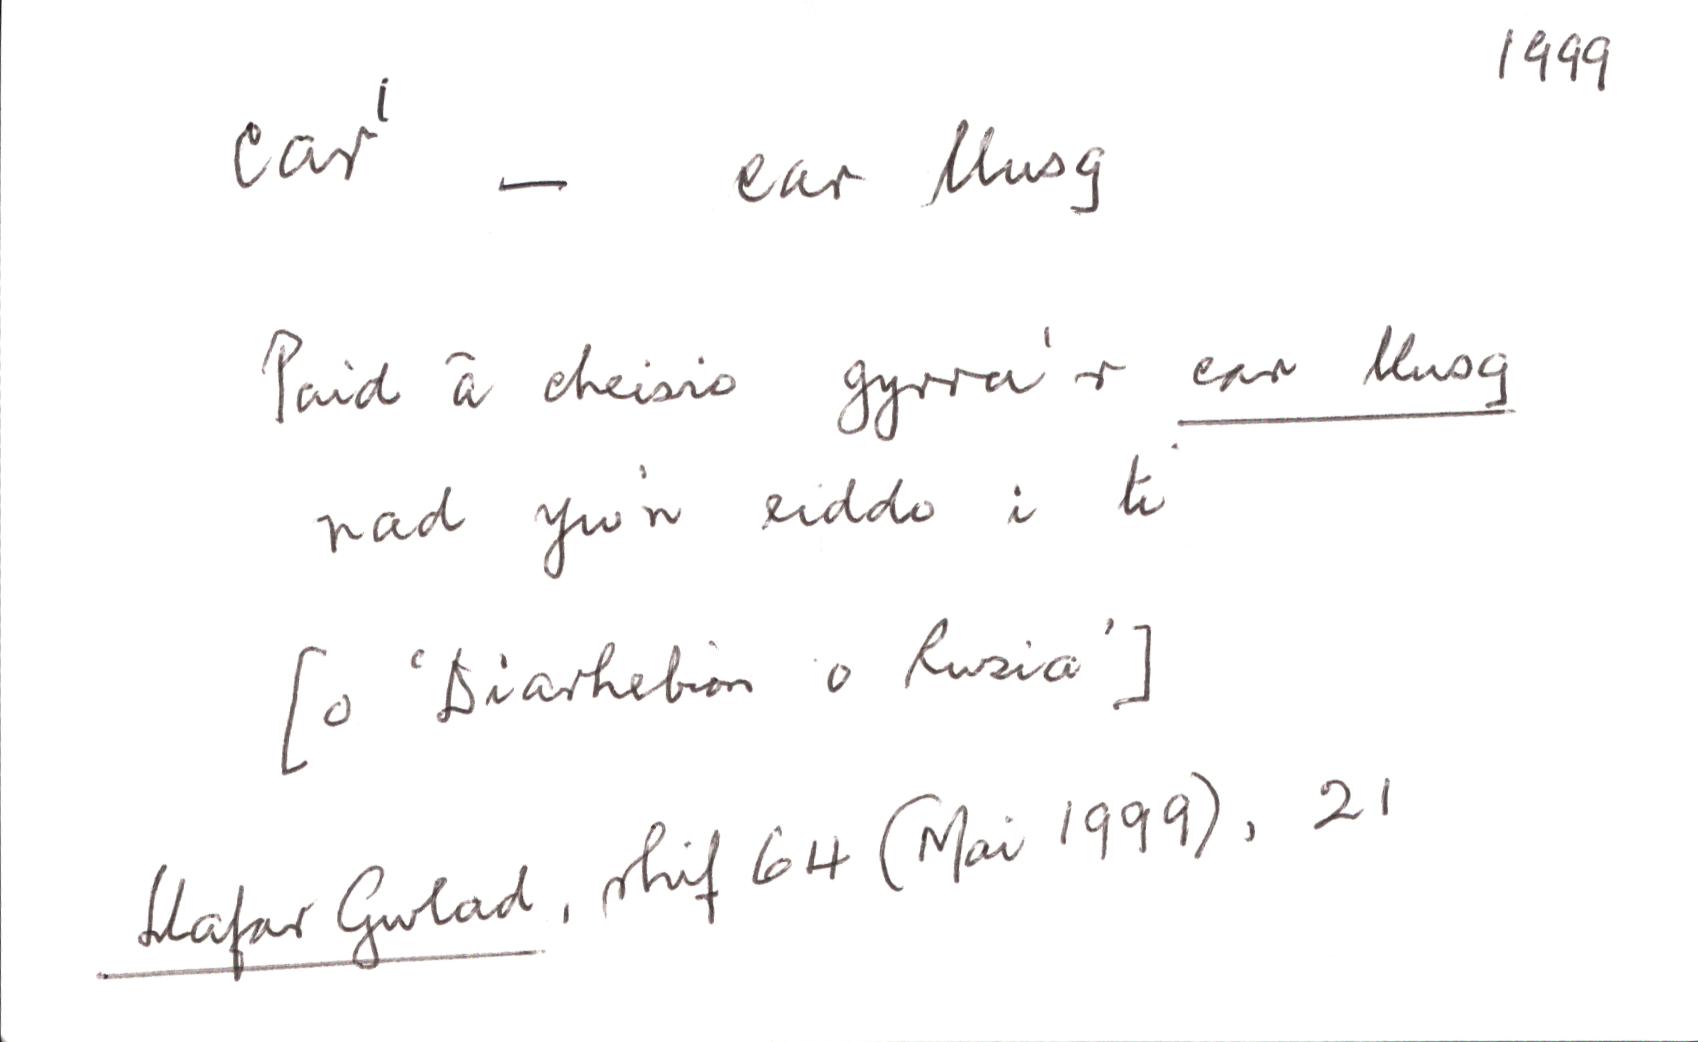 1999
car¹ — car llusg
Paid â cheisio gyrra'r car llusg
nad yw'n eiddo i ti
[o 'Diarhebion o Rwsia']
Llafar Gwlad, rhif 64 (Mai 1999), 21